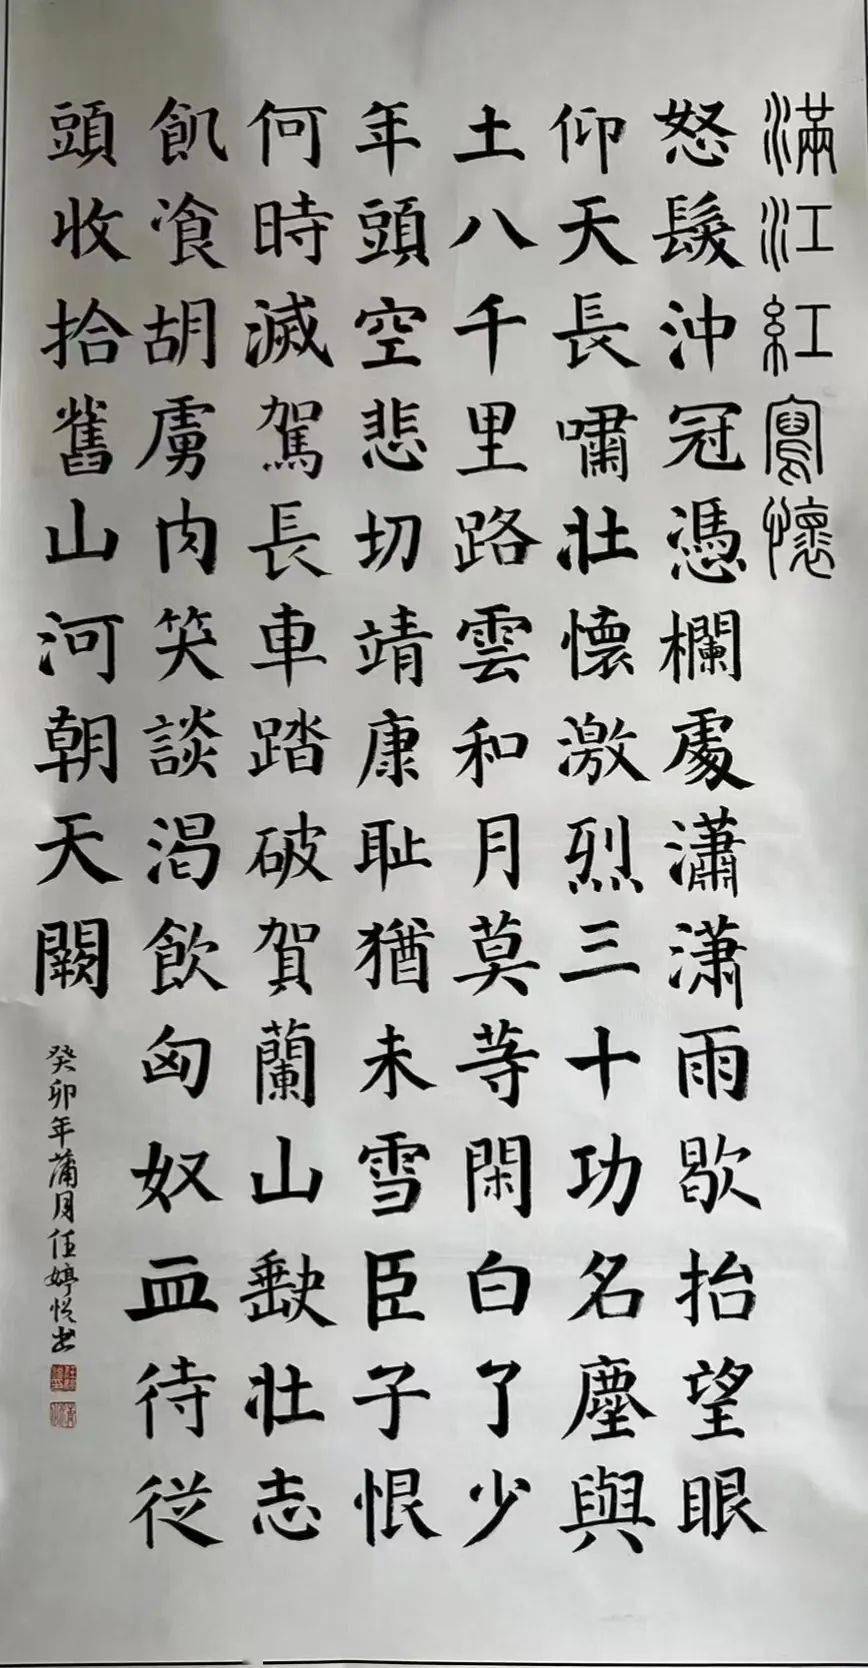 滿江紅寫懷
怒髮沖冠憑欄處瀟瀟雨歇抬望眼
仰天長嘯壯懷激烈三十功名塵與
土八千里路雲和月莫等閑白了少
年頭空悲切靖康耻猶未雪臣子恨
何時滅駕長車踏破賀蘭山缺壯志
飢飡胡虜肉笑談渴飲匈奴血待從
頭收拾舊山河朝天闕
癸卯年蒲月任婷悅書